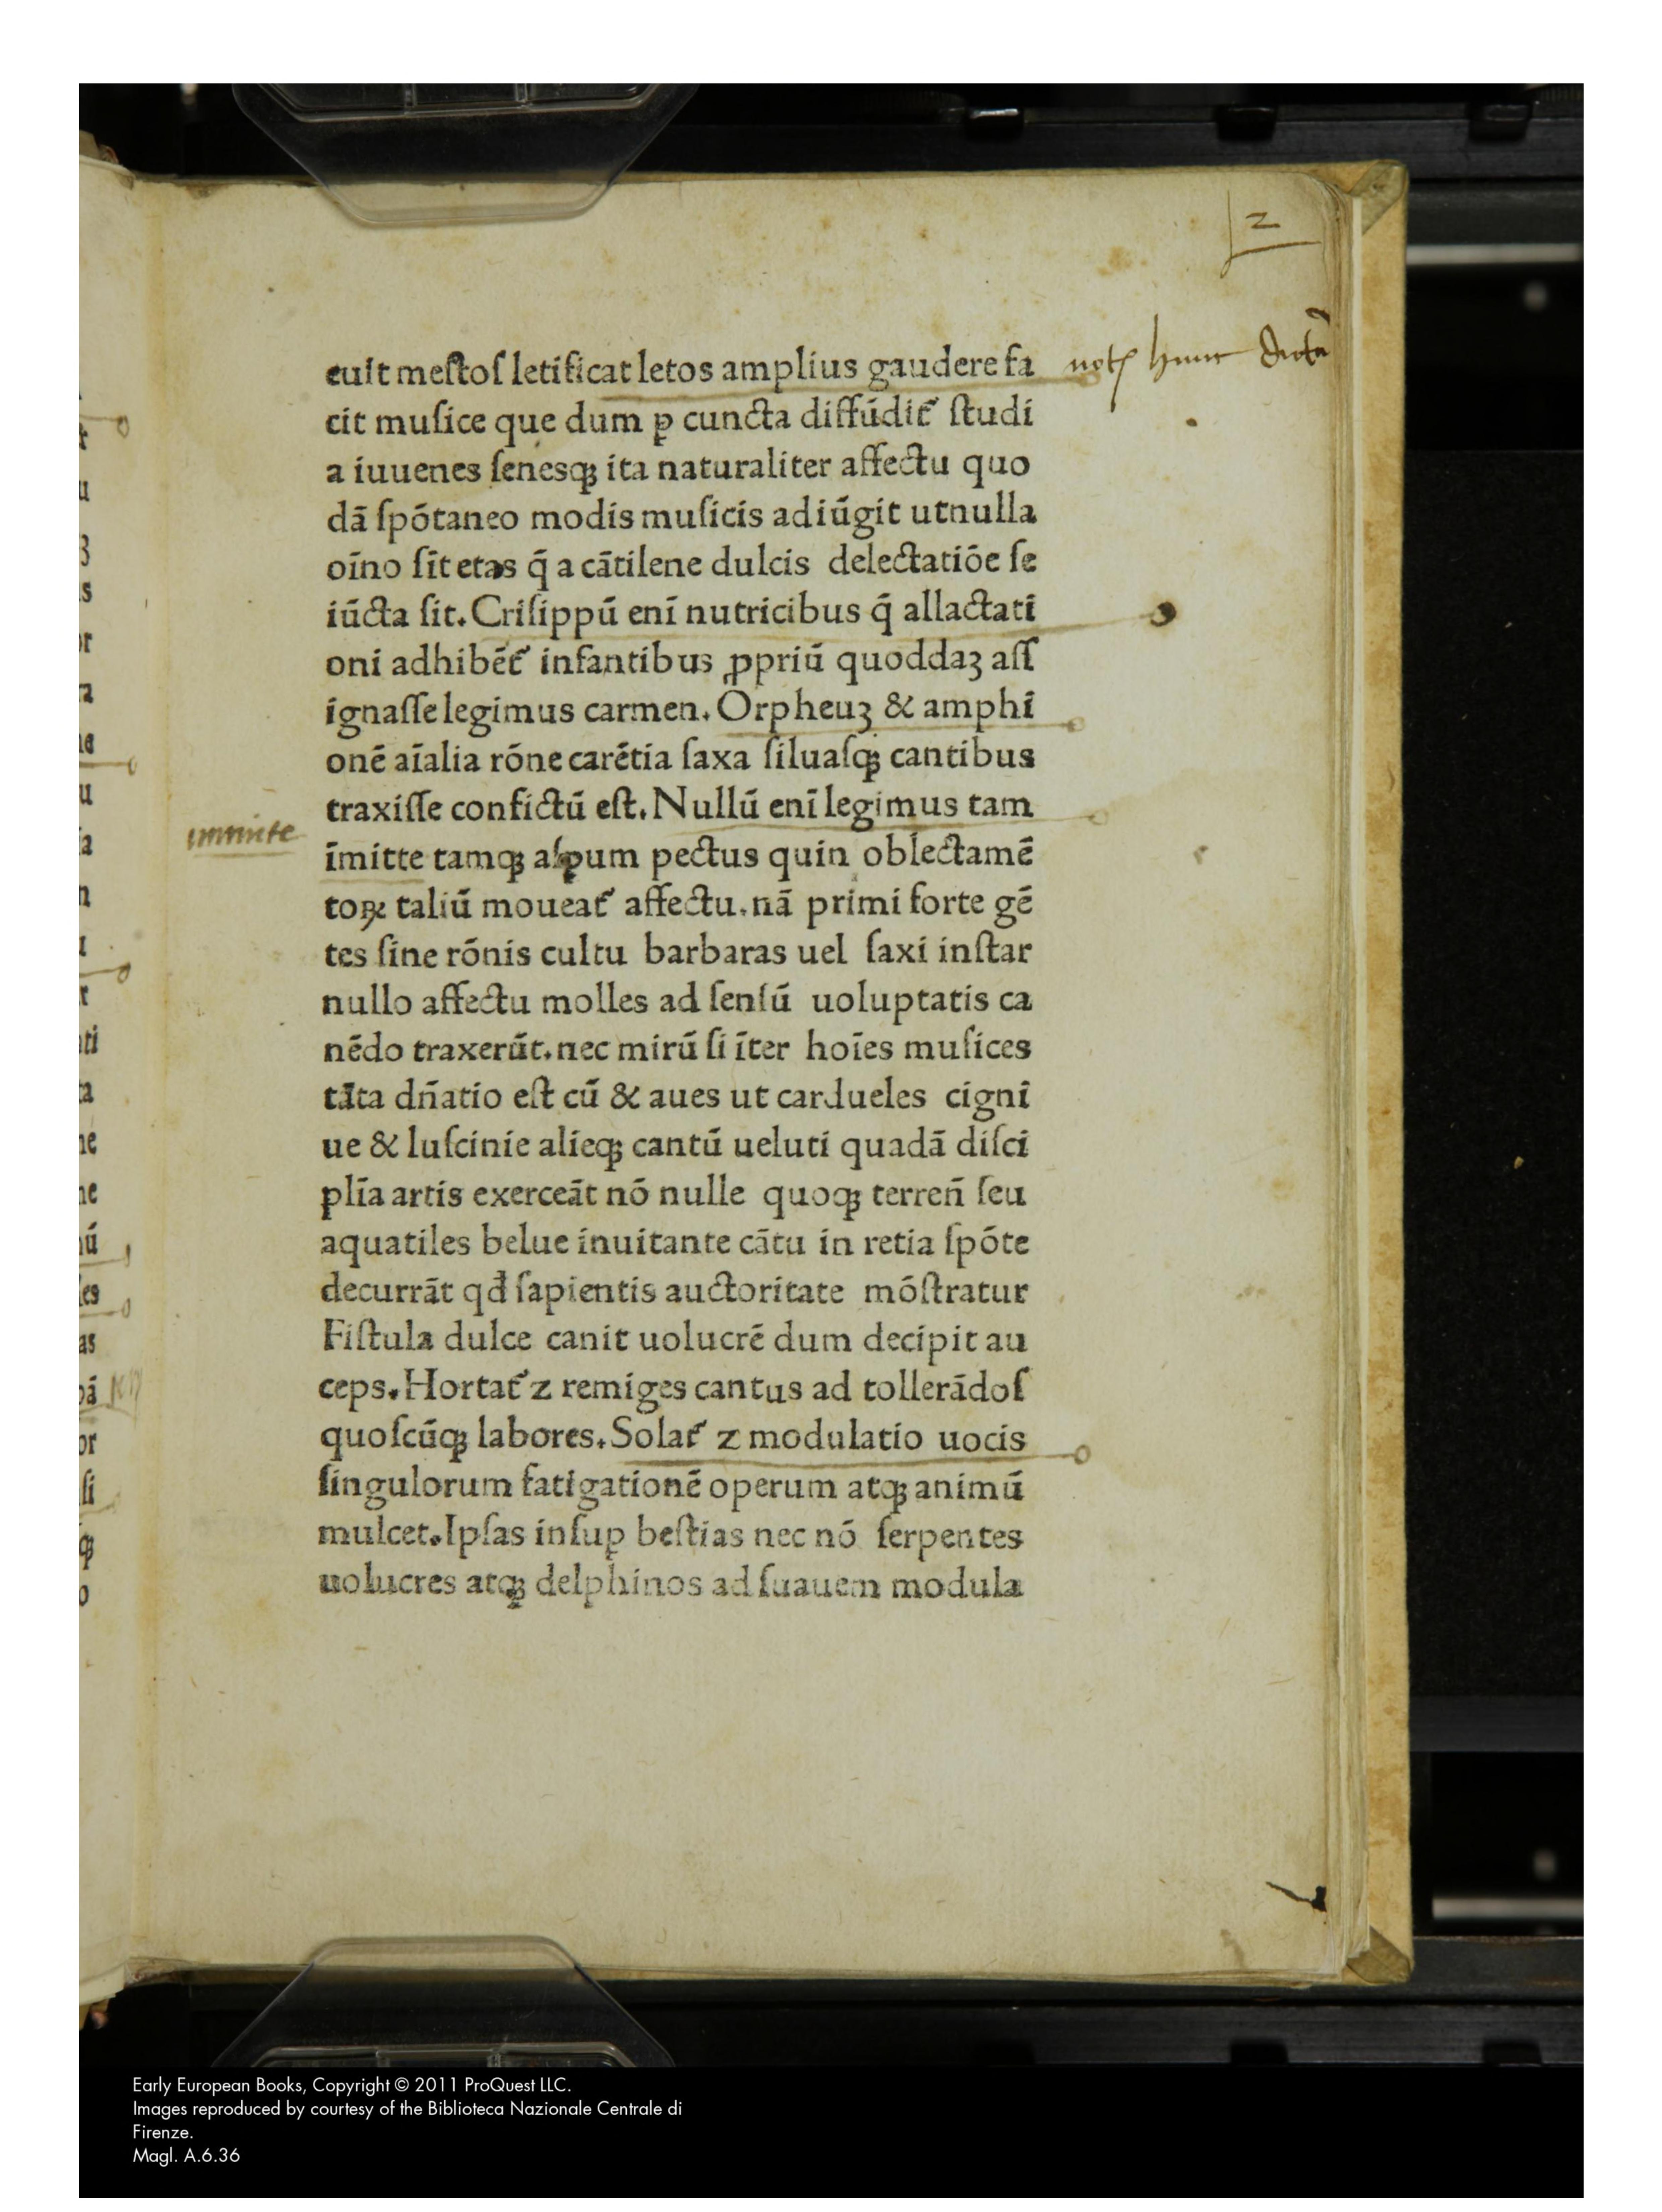 2
euit meſtoſ letificat letos amplius gaudere fa
cit muſice que dum ꝑ cuncta diffūdit᷑ ſtudi
a iuuenes ſenesqꝫ ita naturaliter affectu quo
dā ſpōtaneo modis muſicis adiūgit utnulla
oīno ſit etas q̄ a cātilene dulcis delectatiōe ſe
iūcta ſit. Criſippū enī nutricibus q̄ allactati
oni adhibēt᷑ infantibus ꝓpriū quoddaꝫ aſſ
ignaſſe legimus carmen. Orpheuꝫ & amphi
onē aīalia rōne carētia ſaxa ſiluaſqꝫ cantibus
traxiſſe confictū eſt. Nullū enī legimus tam
immite
īmitte tamqꝫ aſꝑum pectus quin oblectamē
toꝝ taliū moueat᷑ affectu. nā primi forte gē
tes ſine rōnis cultu barbaras uel ſaxi inſtar
nullo affectu molles ad ſenſū uoluptatis ca
nēdo traxerūt. nec mirū ſi īter hoīes muſices
tāta dn̄atio eſt cū & aues ut cardueles cigni
ue & luſcinie alieqꝫ cantū ueluti quadā diſci
plīa artis exerceāt nō nulle quoqꝫ terren̄ ſeu
aquatiles belue inuitante cātu in retia ſpōte
decurrāt qđ ſapientis auctoritate mōſtratur
Fiſtula dulce canit uolucrē dum decipit au
ceps. Hortat᷑ z remiges cantus ad tollerādoſ
quoſcūqꝫ labores. Solat᷑ z modulatio uocis
ſingulorum fatigationē operum atqꝫ animū
mulcet. Ipſas inſuꝑ beſtias nec nō ſerpentes
uolucres atqꝫ delphinos ad ſuauem modula
Early European Books, Copyright © 2011 ProQuest LLC.
Images reproduced by courtesy of the Biblioteca Nazionale Centrale di
Firenze.
Magl. A.6.36